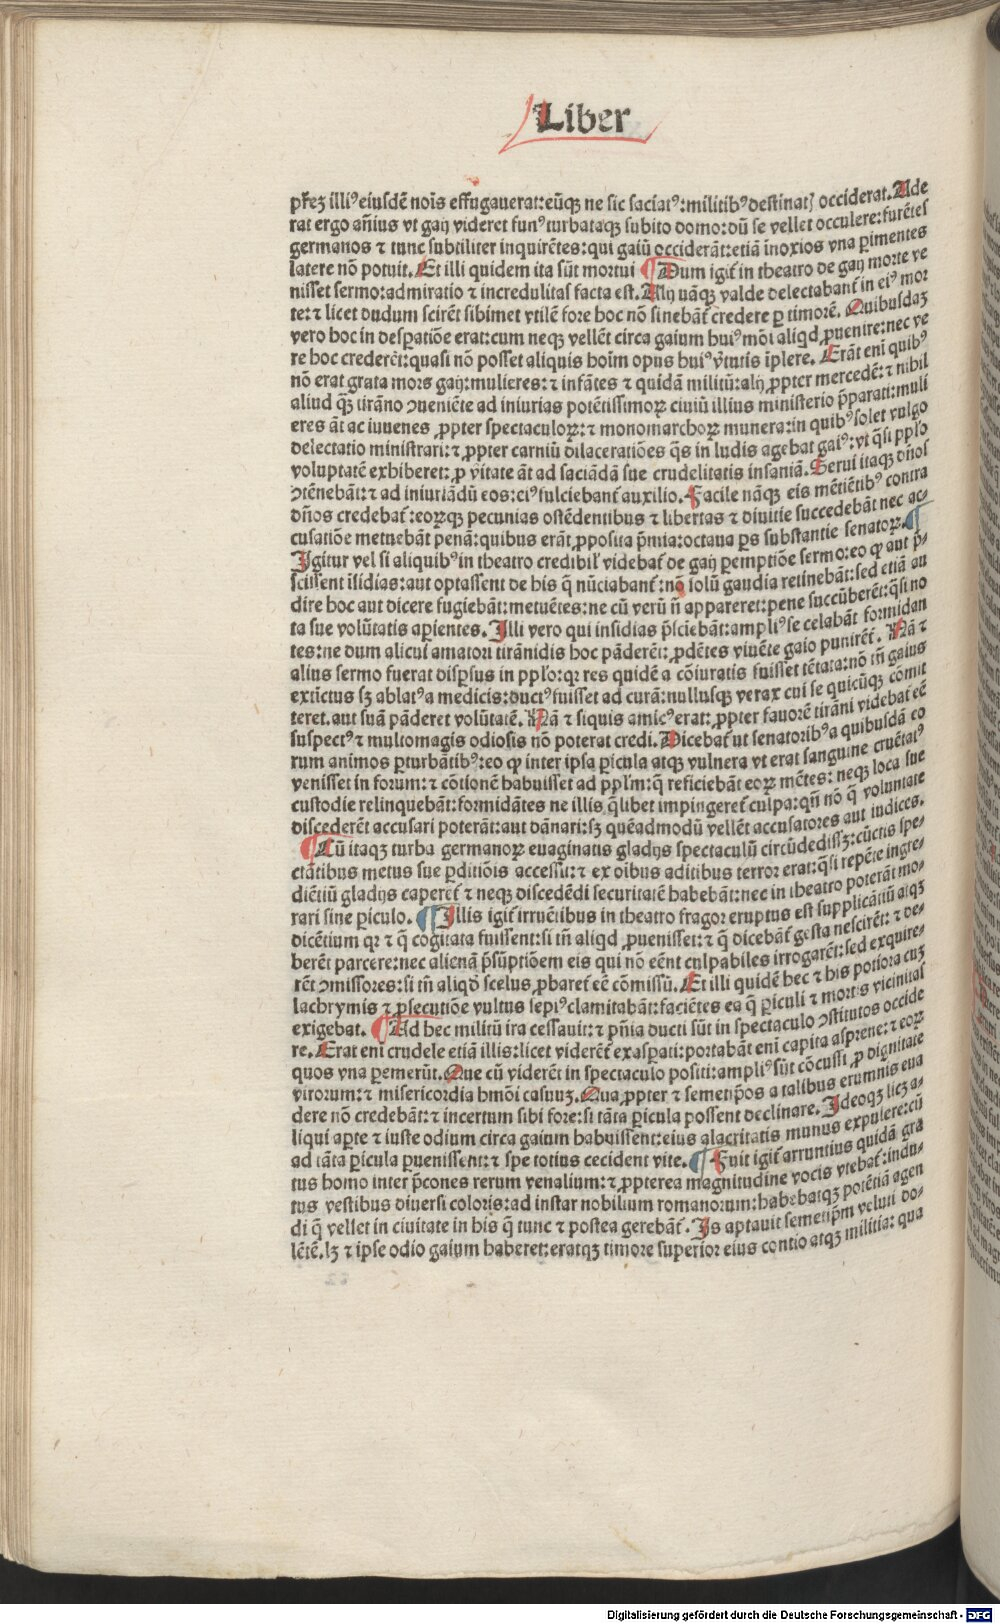 Liber
pr̃eʒ illiꝰ eiusdẽ nois effugauerat: eũqʒ ne sic saciatꝰ: militibꝰ destinat᷒ occiderat. Ade
rat ergo añius vt gaij videret funꝰ turbataqʒ subito domo: dũ se vellet occulere: furẽtes
germanos ⁊ tunc subtiliter inquirẽtes: qui gaiũ occiderãt: etiã inoxios vna ꝑimentes
latere nõ potuit. Et illi quidem ita sũt mortui ¶ Dum igit᷑ in theatro de gaij morte ve
nisset sermo: admiratio ⁊ incredulitas facta est. Alij nãqʒ valde delectabant᷑ in eiꝰ mor
te: ⁊ licet dudum scirẽt sibimet vtilẽ fore hoc nõ sinebãt credere ꝑ timorẽ. Quibusdaʒ
vero hoc in desꝑatiõe erat: cum neqʒ vellẽt circa gaium huiꝰ mõi aliqd ꝓuenire: nec ve
re hoc crederẽt: quasi nõ posset aliquis hoim opus huiꝰ v̾tutis ĩplere. Erãt eni quibꝰ
nõ erat grata mors gaij: mulieres: ⁊ infãtes ⁊ quidã militũ: alij ꝓpter mercedẽ: ⁊ nihil
aliud q̃ʒ tirãno ↄueniẽte ad iniurias potẽtissimoꝝ ciuiũ illius ministerio p̃parati: muli
eres ãt ac iuuenes ꝓpter spectaculoꝝ: ⁊ monomarchoꝝ munera: in quibꝰ solet vulgo
delectatio ministrari: ⁊ ꝓpter carniũ dilaceratiões q̃s in ludis agebat gaiꝰ: vt q̃si ppl̃o
voluptatẽ exhiberet: ꝓ v̾itate ãt ad saciãdã sue crudelitatis insaniã. Serui itaqʒ dños
ↄtẽnebãt: ⁊ ad iniuriãdũ eos: eiꝰ fulciebant᷑ auxilio. Facile nãqʒ eis mẽtiẽtibꝰ contra
dños credebat᷑: eoꝝqʒ pecunias ostẽdentibus ⁊ libertas ⁊ diuitie succedebãt nec ac⸗
cusatiõe metuebãt penã: quibus erãt ꝓposita p̃mia: octaua ꝑs substantie senatoꝝ. ¶
Igitur vel si aliquibꝰ in theatro credibil᷒ videbat᷑ de gaij ꝑemptiõe sermo: eo ꝙ aut p̃⸗
scissent ĩsidias: aut optassent de his q̃ nũciabant᷑: nõ solũ gaudia retinebãt: sed etiã au
dire hoc aut dicere fugiebãt: metuẽtes: ne cũ verũ ñ appareret: pene succũberẽt: q̃si no
ta sue volũtatis aꝑientes. Illi vero qui insidias p̃sciebãt: ampliꝰ se celabãt formidan
tes: ne dum alicui amatori tirãnidis hoc pãderẽt: ꝓdẽtes viuẽte gaio punirẽt᷑. Nã ⁊
alius sermo fuerat disꝑsus in ppl̃o: qꝛ res quidẽ a cõiuratis fuisset tẽtata: nõ tñ gaius
extĩctus sʒ ablatꝰ a medicis: ductꝰ fuisset ad curã: nullusqʒ verax cui se quicũqʒ cõmit
teret. aut suã pãderet volũtatẽ. Nã ⁊ siquis amicꝰ erat: ꝓpter fauorẽ tirãni videbat᷑ eẽ
suspectꝰ ⁊ multomagis odiosis nõ poterat credi. Dicebat᷑ ut senatoribꝰ a quibusdã eo
rum animos ꝑturbãtibꝰ: eo ꝙ inter ipsa ꝑicula atqʒ vulnera vt erat sanguine cruẽtatꝰ
venisset in forum: ⁊ cõtionẽ habuisset ad ppl̃m: q̃ reficiebãt eoꝝ mẽtes: neqʒ loca sue
custodie relinquebãt: formidãtes ne illis q̃libet impingeret᷑ culpa: qñ nõ q̃ voluntate
discederẽt accusari poterãt: aut dãnari: sʒ quẽadmodũ vellẽt accusatores aut iudices.
¶ Cũ itaqʒ turba germanoꝝ euaginatis gladijs spectaculũ circũdedissʒ: cũctis spe⸗
ctãtibus metus sue ꝑditiõis accessit: ⁊ ex oĩbus aditibus terror erat: q̃si repẽte ingre⸗
diẽtiũ gladijs caperẽt᷑ ⁊ neqʒ discedẽdi securitatẽ habebãt: nec in theatro poterãt mo⸗
rari sine ꝑiculo. ¶ Illis igit᷑ irruẽtibus in theatro fragor eruptus est supplicãtiũ atqʒ
dicẽtium qꝛ ⁊ q̃ cogitata fuissent: si tñ aliqd ꝓuenisset: ⁊ q̃ dicebãt᷑ gesta nescirẽt: ⁊ de⸗
berẽt parcere: nec alienã p̃sũptiõem eis qui nõ eẽnt culpabiles irrogarẽt: sed exquire⸗
rẽt ↄmissores: si tñ aliqđ scelus ꝓbaret᷑ eẽ cõmissũ. Et illi quidẽ hec ⁊ his potiora cuʒ
lachrymis ⁊ ꝑsecutiõe vultus sepiꝰ clamitabãt: faciẽtes ea q̃ ꝑiculi ⁊ mortis vicinitas
exigebat. ¶ Ad hec militũ ira cessauit: ⁊ pñia ducti sũt in spectaculo ↄstitutos occide
re. Erat eni crudele etiã illis: licet viderẽt᷑ exasꝑati: portabãt eni capita asprene: ⁊ eoꝝ
quos vna ꝑemerũt. Que cũ viderẽt in spectaculo positi: ampliꝰ sũt cõcussi ꝓ dignitate
virorum: ⁊ misericordia hmõi casuuʒ. Qua ꝓpter ⁊ semetip̃os a talibus erumnis eua
dere nõ credebãt: ⁊ incertum sibi fore: si tãta ꝑicula possent declinare. Ideoqʒ licʒ a⸗
liqui aꝑte ⁊ iuste odium circa gaium habuissent: eius alacritatis munus expulere: cũ
ad tãta ꝑicula ꝑuenissent: ⁊ spe totius cecident vite. ¶ Fuit igit᷑ arruntius quidã gra
tus homo inter p̃cones rerum venalium: ⁊ ꝓpterea magnitudine vocis vtebat᷑: indu⸗
tus vestibus diuersi coloris: ad instar nobilium romanorum: habebatqʒ potẽtiã agen
di q̃ vellet in ciuitate in his q̃ tunc ⁊ postea gerebãt᷑. Is aptauit semetip̃m veluti do⸗
lẽtẽ. lʒ ⁊ ipse odio gaium haberet: eratqʒ timore superior eius contio atqʒ militia: qua
Digitalisierung gefördert durch die Deutsche Forschungsgemeinschaft - DFG